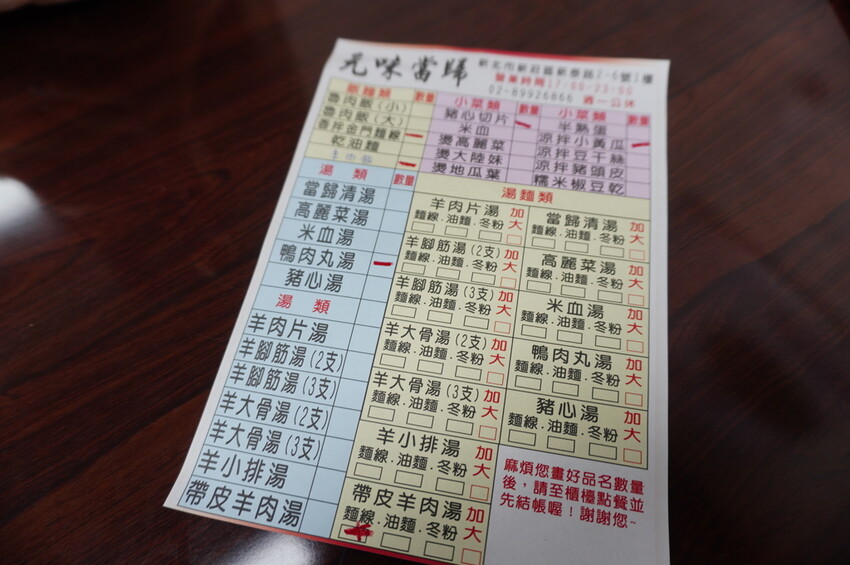 元味當歸
新北市新莊區新泰路2-6號1樓
營業時間17:00-23:00
02-89926866 週一公休
飯麵類 數量
魯肉飯(小)
魯肉飯(大)
香拌金門麵線
乾油麵
小菜類 數量
豬心切片
米血
燙高麗菜
燙大陸妹
燙地瓜葉
小菜類 數量
半熟蛋
涼拌小黃瓜
涼拌豆干絲
涼拌豬頭皮
糯米椒豆乾
湯類 數量
當歸清湯
高麗菜湯
米血湯
鴨肉丸湯
豬心湯
湯類
羊肉片湯
羊腳筋湯(2支)
羊腳筋湯(3支)
羊大骨湯(2支)
羊大骨湯(3支)
羊小排湯
帶皮羊肉湯
湯麵類
羊肉片湯 加大
麵線.油麵.冬粉
羊腳筋湯(2支) 加大
麵線.油麵.冬粉
羊腳筋湯(3支) 加大
麵線.油麵.冬粉
羊大骨湯(2支) 加大
麵線.油麵.冬粉
羊大骨湯(3支) 加大
麵線.油麵.冬粉
羊小排湯 加大
麵線.油麵.冬粉
帶皮羊肉湯 加大
麵線.油麵.冬粉
當歸清湯 加大
麵線.油麵.冬粉
高麗菜湯 加大
麵線.油麵.冬粉
米血湯 加大
麵線.油麵.冬粉
鴨肉丸湯 加大
麵線.油麵.冬粉
豬心湯 加大
麵線.油麵.冬粉
麻煩您畫好品名數量
後,請至櫃檯點餐並
先結帳喔!謝謝您~